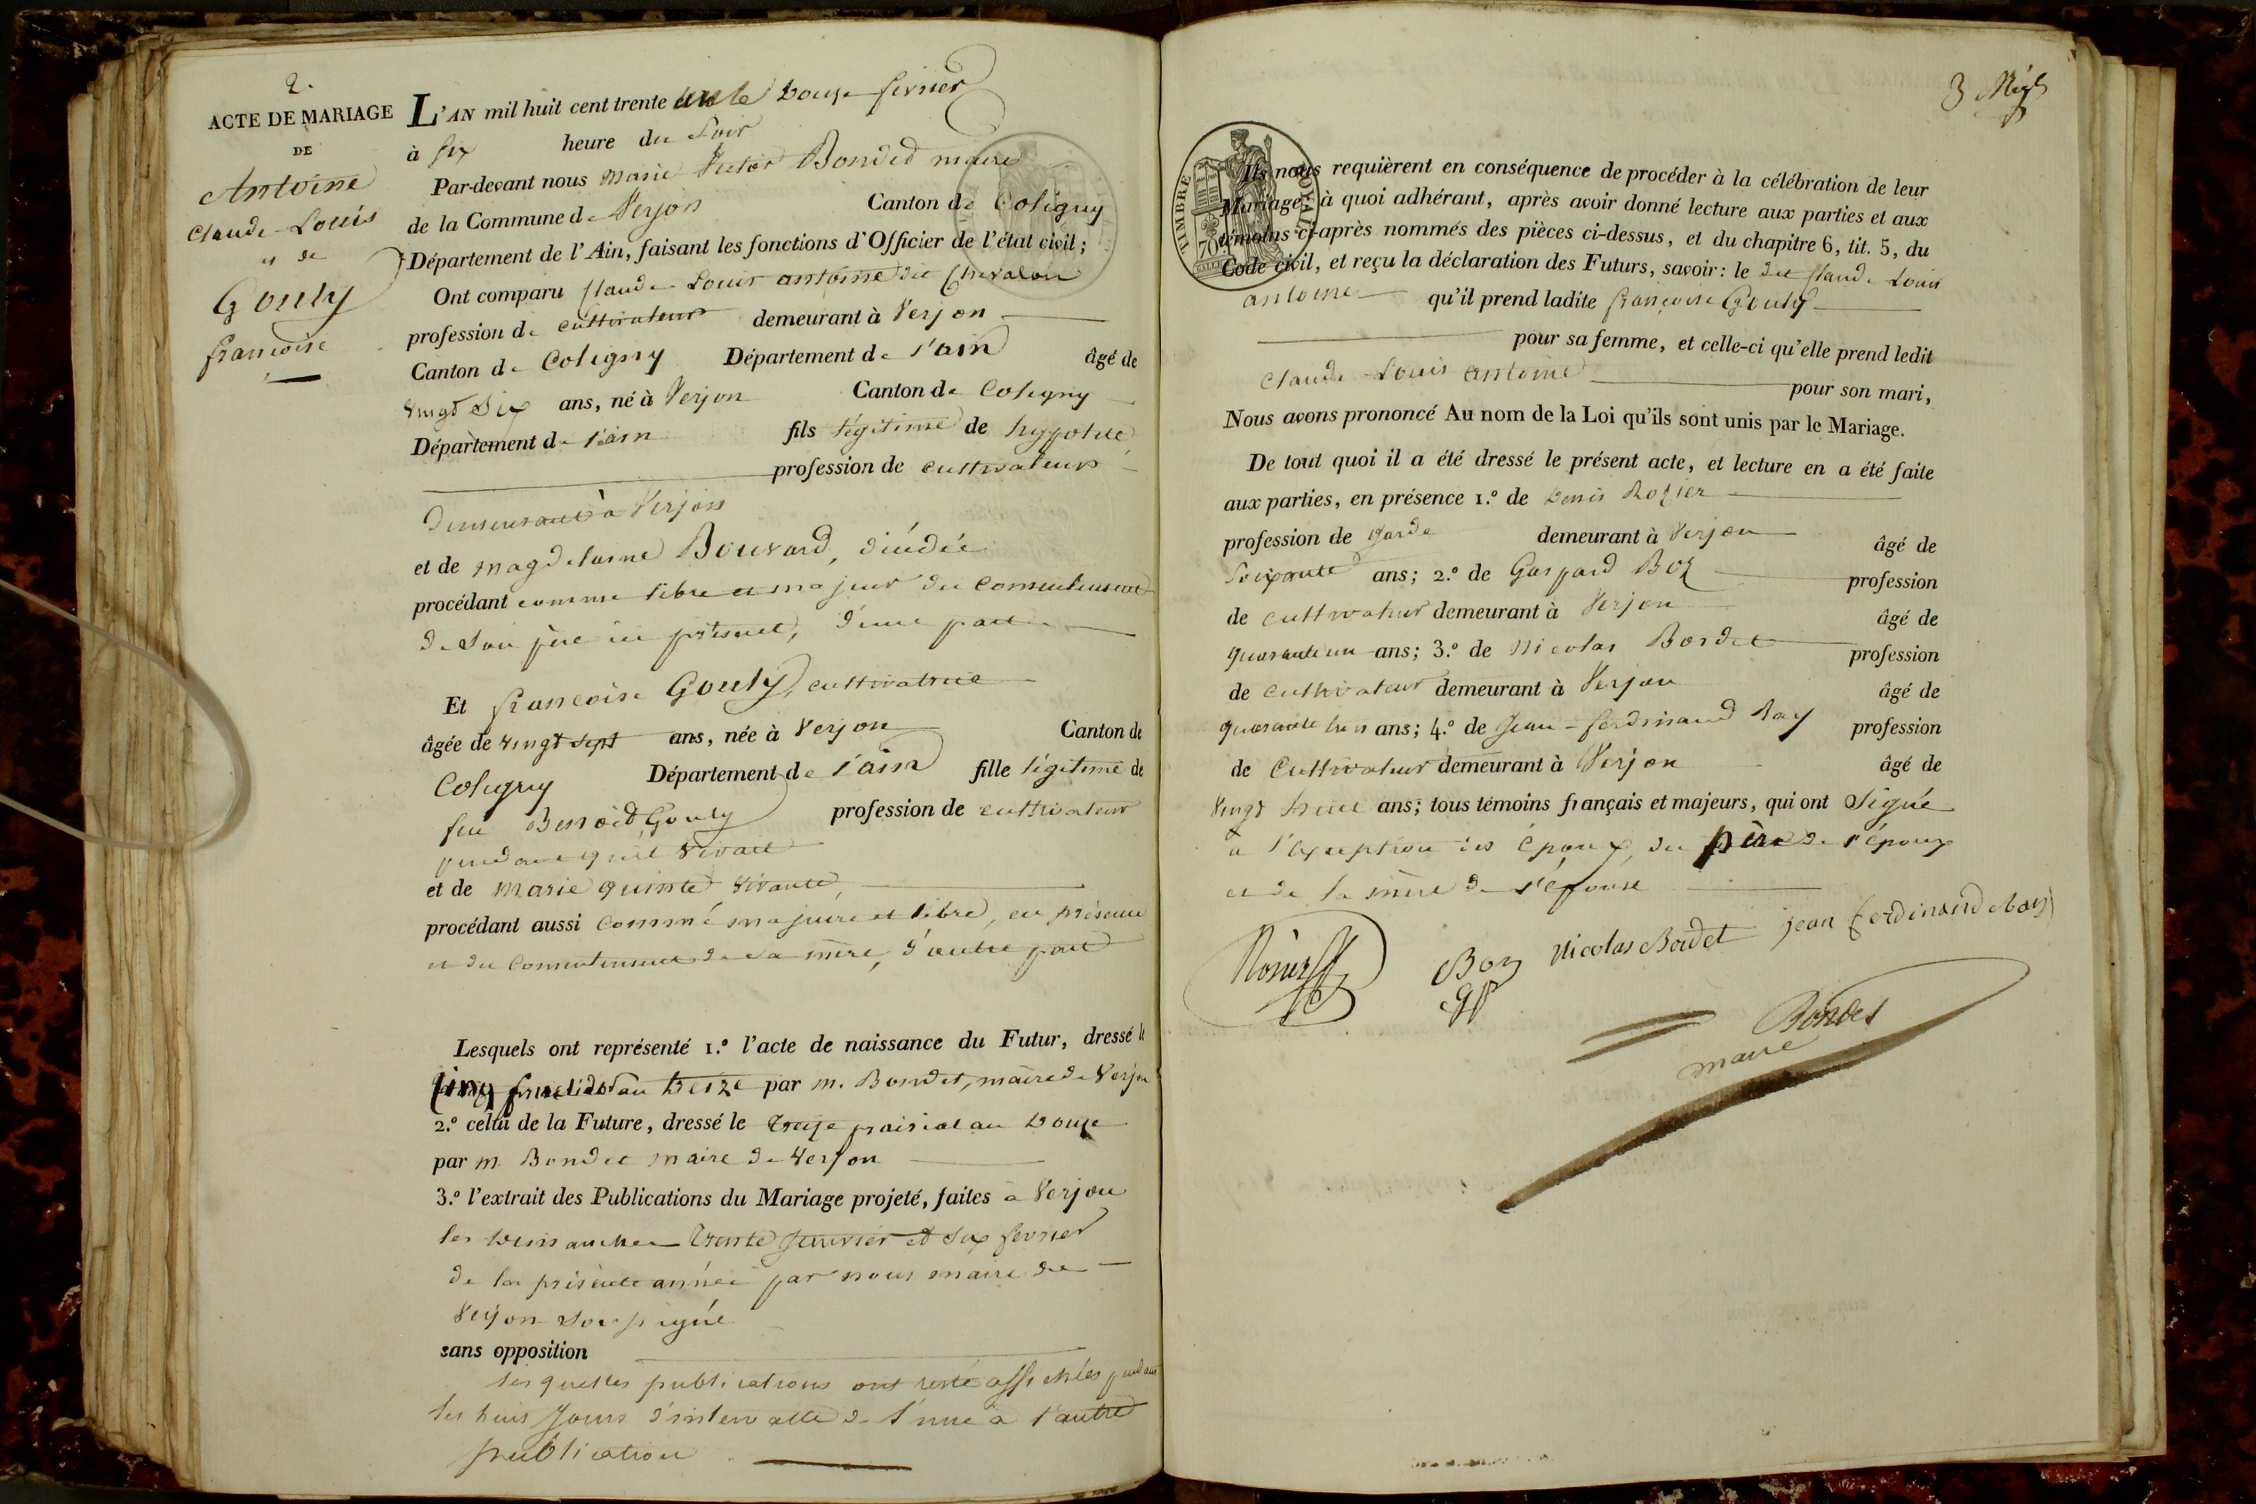 2.
ACTE DE MARIAGE
DE
Antoine
Claude-Louis
et de
Gouly
françoise
L'AN mil huit cent trente un le douze fevrier
à six heure du soir
Par-devant nous marie Victor Bondet maire
de la Commune de Verjon Canton de Coligny
Département de l'Ain, faisant les fonctions d'Officier de l'état civil;
Ont comparu Claude Louis antoine dit Chevalon
profession de cultivateur demeurant à Verjon
Canton de Coligny Département de l'ain âgé de
vingt six ans, né à Verjon Canton de Coligny
Département de l'ain fils légitime de hypolite
profession de cultivateur
demeurant à Verjon
et de magdelaine Bouvard, décédée
procédant comme libre et majeur du consentement
de son père ici présent, d'une part
Et francoise Gouly, cultivatrice
âgée de vingt sept ans, née à Verjon Canton de
Coligny Département de l'ain fille légitime de
feu Benoid Gouly profession de cultivateur
pendant qu'il vivait
et de marie quinte vivante,
procédant aussi comme majeure et libre, en présence
et du consentement de sa mère, d'autre part
Lesquels ont représenté 1.º l'acte de naissance du Futur, dressé le
cinq fructidor an treize par m. Bondet, maire de Verjon
2.º celui de la Future, dressé le treize prairial an douze
par m Bondet maire de Verjon
3.º l'extrait des Publications du Mariage projeté, faites à Verjon
les dimanches trente janvier et six fevrier
de la présente année par nous maire de
Verjon soussigné
sans opposition
lesquelles publications ont resté affichées pendant
les huit jours d'intervalle de l'une à l'autre
publication
TIMBRE ROYAL
70
Ils nous requièrent en conséquence de procéder à la célébration de leur
Mariage; à quoi adhérant, après avoir donné lecture aux parties et aux
témoins ci-après nommés des pièces ci-dessus, et du chapitre 6, tit. 5, du
Code civil, et reçu la déclaration des Futurs, savoir: le dit Claude Louis
antoine qu'il prend ladite françoise Gouly
pour sa femme, et celle-ci qu'elle prend ledit
Claude Louis antoine pour son mari,
Nous avons prononcé Au nom de la Loi qu'ils sont unis par le Mariage.
De tout quoi il a été dressé le présent acte, et lecture en a été faite
aux parties, en présence 1.º de Denis Rozier
profession de garde demeurant à Verjon âgé de
soixante ans; 2.º de Gaspard Boz profession
de cultivateur demeurant à Verjon âgé de
quarante un ans; 3.º de Nicolas Bordet profession
de cultivateur demeurant à Verjon âgé de
quarante trois ans; 4.º de Jean-ferdinand Ray profession
de Cultivateur demeurant à Verjon âgé de
vingt huit ans; tous témoins français et majeurs, qui ont signé
à l'exception des époux, du père de l'époux
et de la mère de l'épouse
Rosier Boz Nicolas Bordet jean ferdinand Ray
gp
Bondet
maire